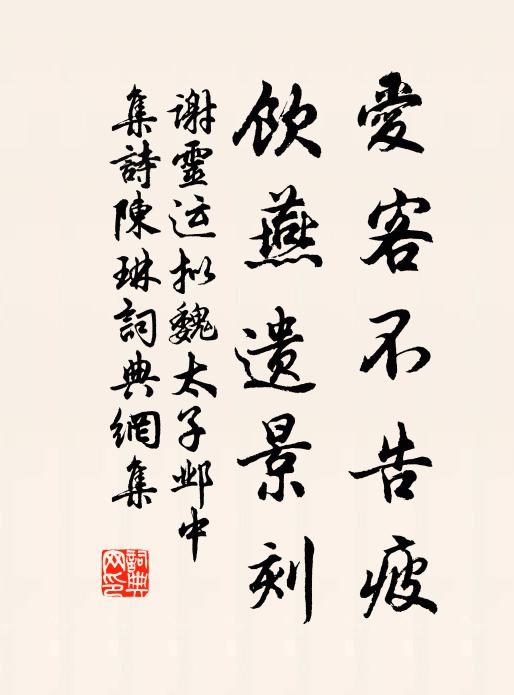 愛客不告疲
飲燕遺景刻
谢靈运拟魏太子邺中
集詩陳琳詞典網集
詞典
网印